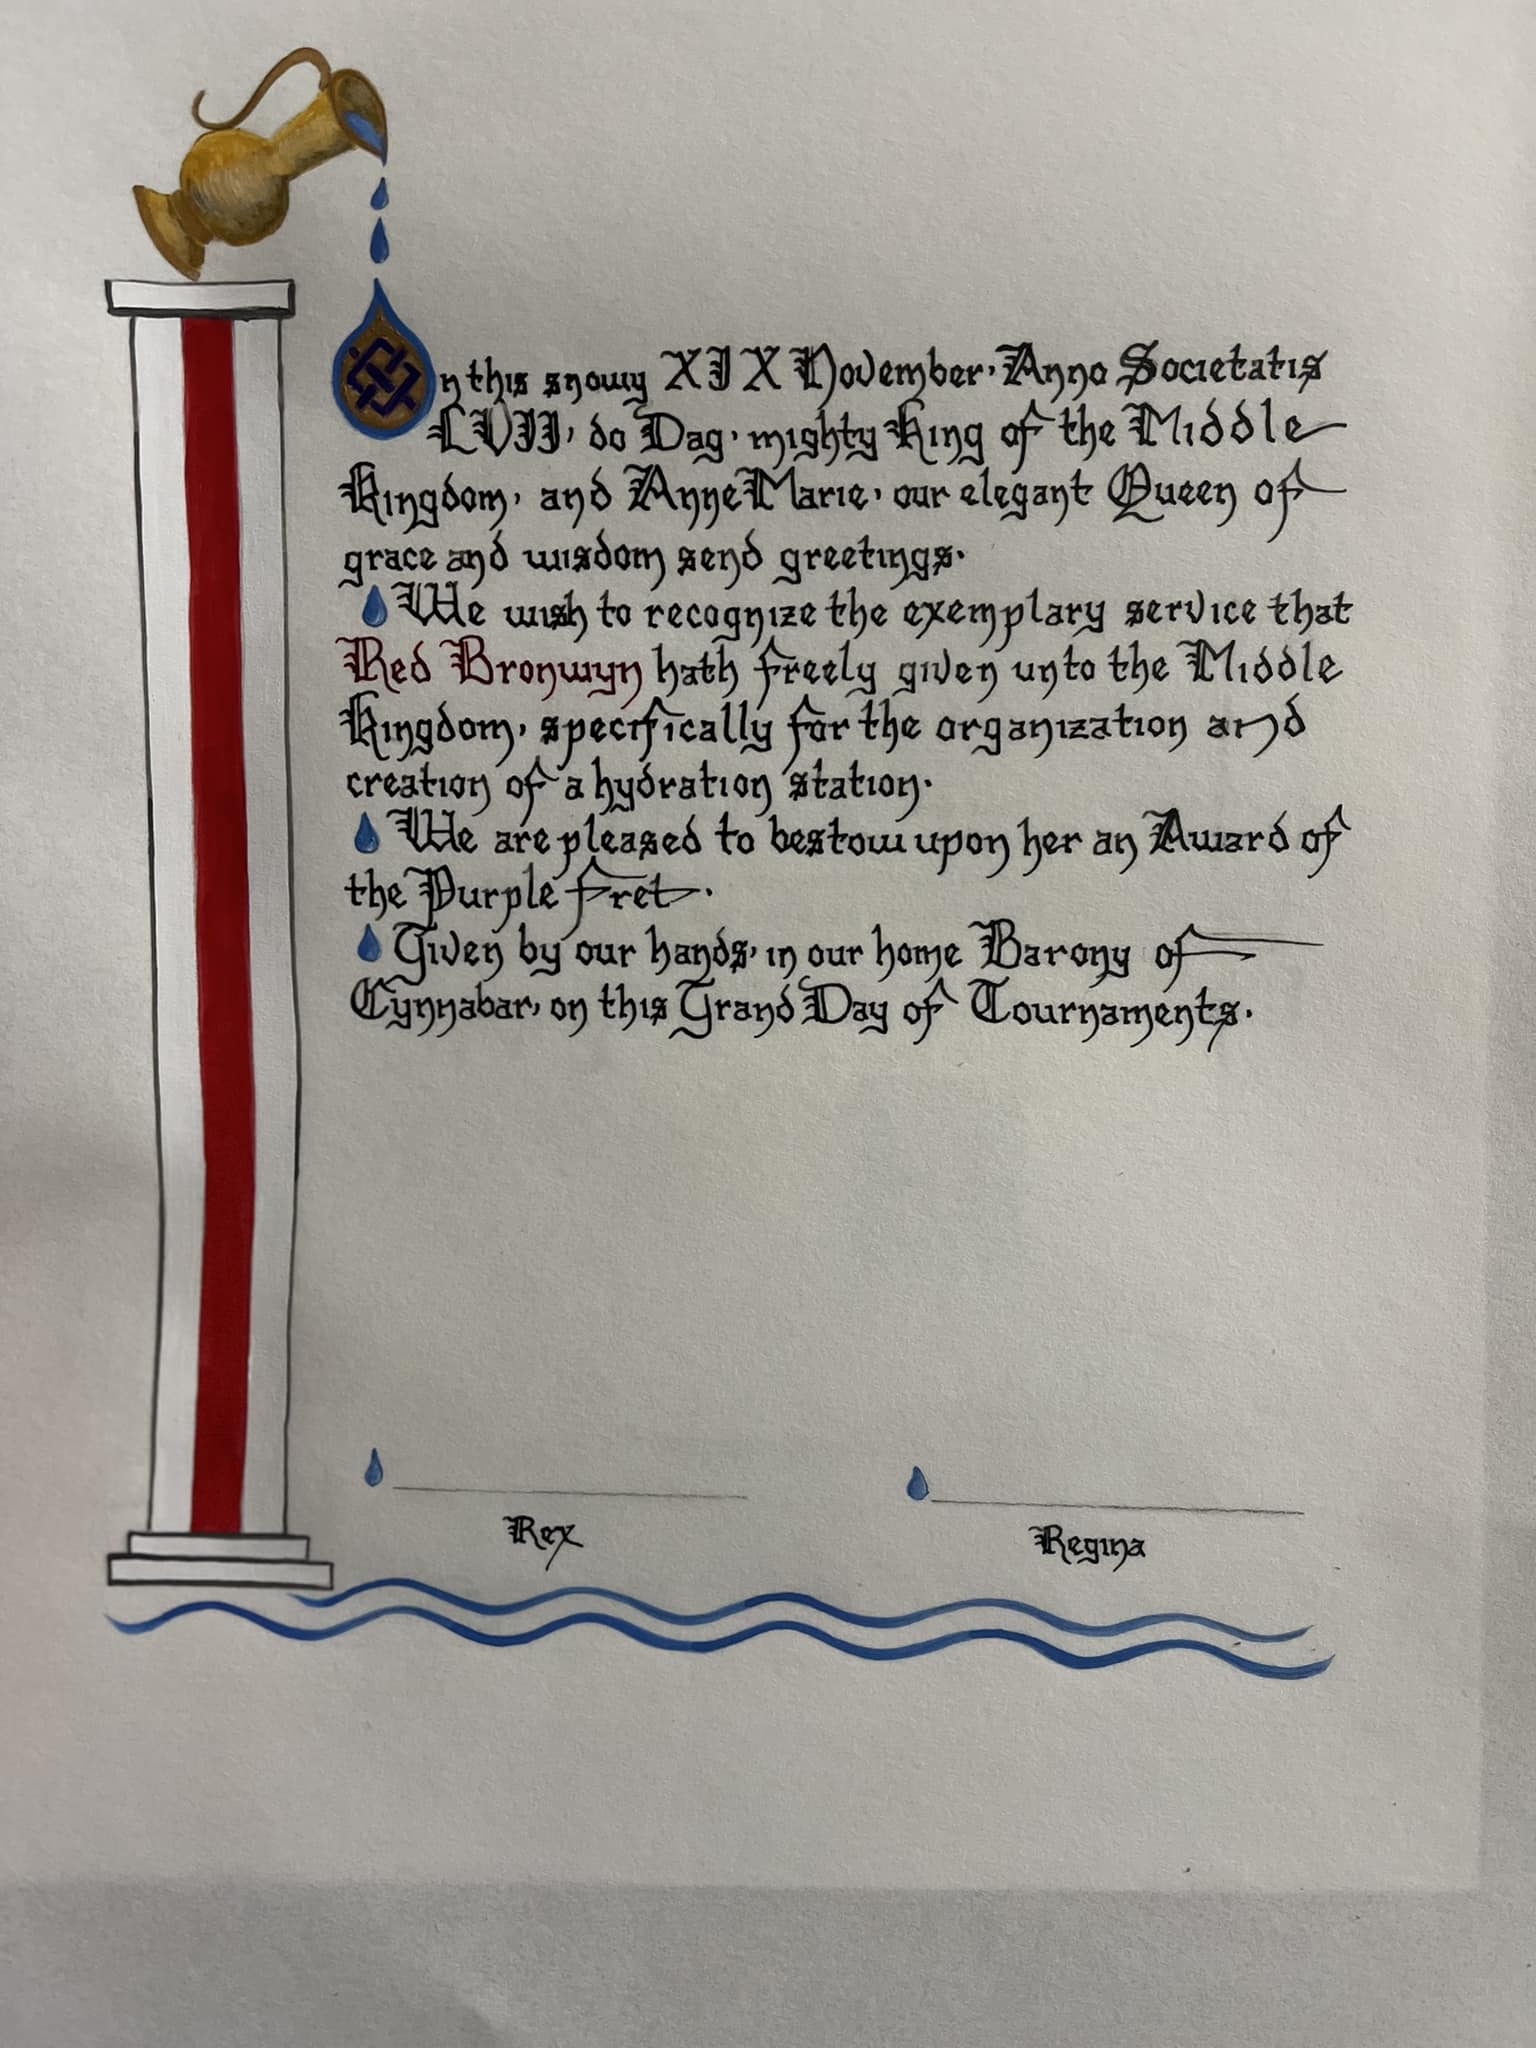 On this snowy XIX November, Anno Societatis
LVII, do Dag, mighty King of the Middle
Kingdom, and AnneMarie, our elegant Queen of
grace and wisdom send greetings.
We wish to recognize the exemplary service that
Red Bronwyn hath freely given unto the Middle
Kingdom, specifically for the organization and
creation of a hydration station.
We are pleased to bestow upon her an Award of
the Purple Fret.
Given by our hands, in our home Barony of
Cynnabar, on this Grand Day of Tournaments.
Rex Regina